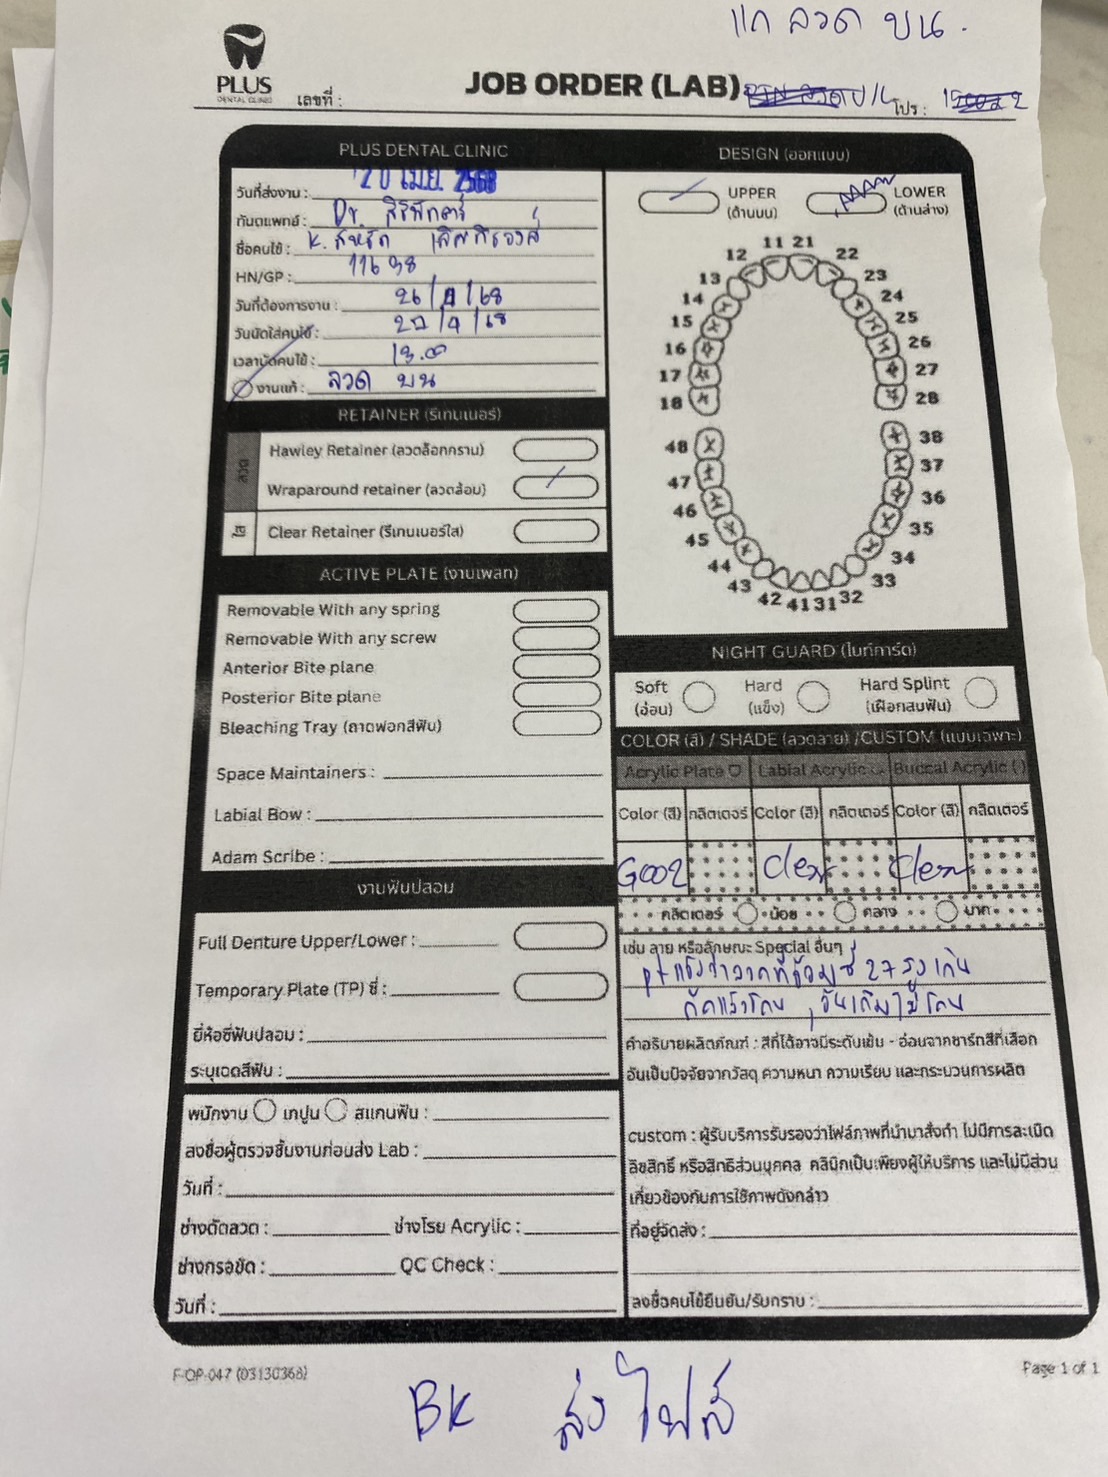 แก ลวด บน.
PLUS
DENTAL CLINIC
เลขที่ :
JOB ORDER (LAB)
โปร :
PLUS DENTAL CLINIC
วันที่ส่งงาน : 20 เม.ย. 2568
ทันตแพทย์ : Dr.
ชื่อคนไข้ : K.
HN/GP : 11698
วันที่ต้องการงาน : 26/4/68
วันนัดใส่คนไข้ : 27/4/68
เวลานัดคนไข้ : 13.00
งานแก้ : ลวด บน
RETAINER (รีเทนเนอร์)
ลวด
Hawley Retainer (ลวดล็อกกราม)
Wraparound retainer (ลวดล้อม)
ใส
Clear Retainer (รีเทนเนอร์ใส)
ACTIVE PLATE (งานเพลท)
Removable With any spring
Removable With any screw
Anterior Bite plane
Posterior Bite plane
Bleaching Tray (ถาดฟอกสีฟัน)
Space Maintainers :
Labial Bow :
Adam Scribe :
งานฟันปลอม
Full Denture Upper/Lower :
Temporary Plate (TP) ซี่ :
ยี่ห้อซี่ฟันปลอม :
ระบุเฉดสีฟัน :
พนักงาน เทปูน สแกนฟัน :
ลงชื่อผู้ตรวจชิ้นงานก่อนส่ง Lab :
วันที่ :
ช่างดัดลวด : ช่างโรย Acrylic :
ช่างกรอขัด : QC Check :
วันที่ :
DESIGN (ออกแบบ)
UPPER
(ด้านบน)
LOWER
(ด้านล่าง)
11 21
12 22
13 23
14 24
15 25
16 26
17 27
18 28
48 38
47 37
46 36
45 35
44 34
43 33
42 41 31 32
NIGHT GUARD (ไนท์การ์ด)
Soft
(อ่อน)
Hard
(แข็ง)
Hard Splint
(เฝือกสบฟัน)
COLOR (สี) / SHADE (ลวดลาย) /CUSTOM (แบบเฉพาะ)
Acrylic Plate Labial Acrylic Buccal Acrylic ( )
Color (สี) กลิตเตอร์ Color (สี) กลิตเตอร์ Color (สี) กลิตเตอร์
G002 Clear Clear
กลิตเตอร์ น้อย กลาง มาก
เช่น ลาย หรือลักษณะ Special อื่นๆ
pt แจ้งว่าลวดที่อ้อมซี่ 27 สูงเกิน
กัดแล้วโดน , อันเดิมไม่โดน
คำอธิบายผลิตภัณฑ์ : สีที่ได้อาจมีระดับเข้ม - อ่อนจากชาร์ทสีที่เลือก
อันเป็นปัจจัยจากวัสดุ ความหนา ความเรียบ และกระบวนการผลิต
custom : ผู้รับบริการรับรองว่าไฟล์ภาพที่นำมาสั่งทำ ไม่มีการละเมิด
ลิขสิทธิ์ หรือสิทธิส่วนบุคคล คลินิกเป็นเพียงผู้ให้บริการ และไม่มีส่วน
เกี่ยวข้องกับการใช้ภาพดังกล่าว
ที่อยู่จัดส่ง :
ลงชื่อคนไข้ยืนยัน/รับทราบ :
F-OP-047 (03130368)
Page 1 of 1
BK ส่งไฟล์